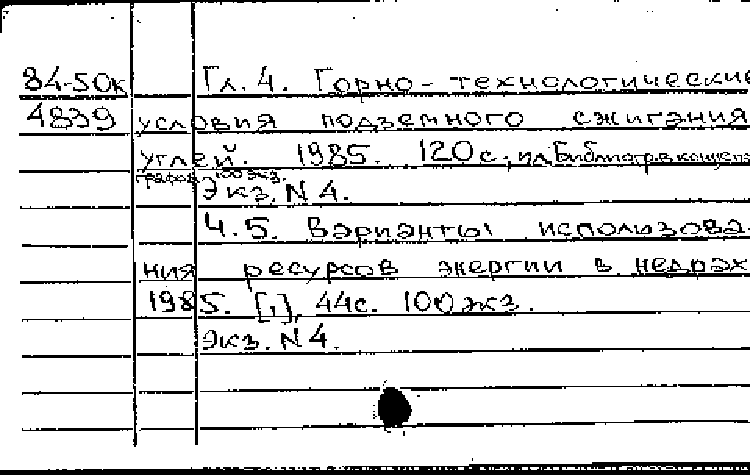 84-50к Гл. 4. Горно-технологические
4839 условия подземного сжигания
углей. 1985. 120 с., ил. Библиогр. в конце гл.
графов. 100 экз.
Экз. N 4.
Ч. 5. Варианты использова-
ния ресурсов энергии в недрах
1985. [1], 44с. 100 экз.
Экз. N 4.